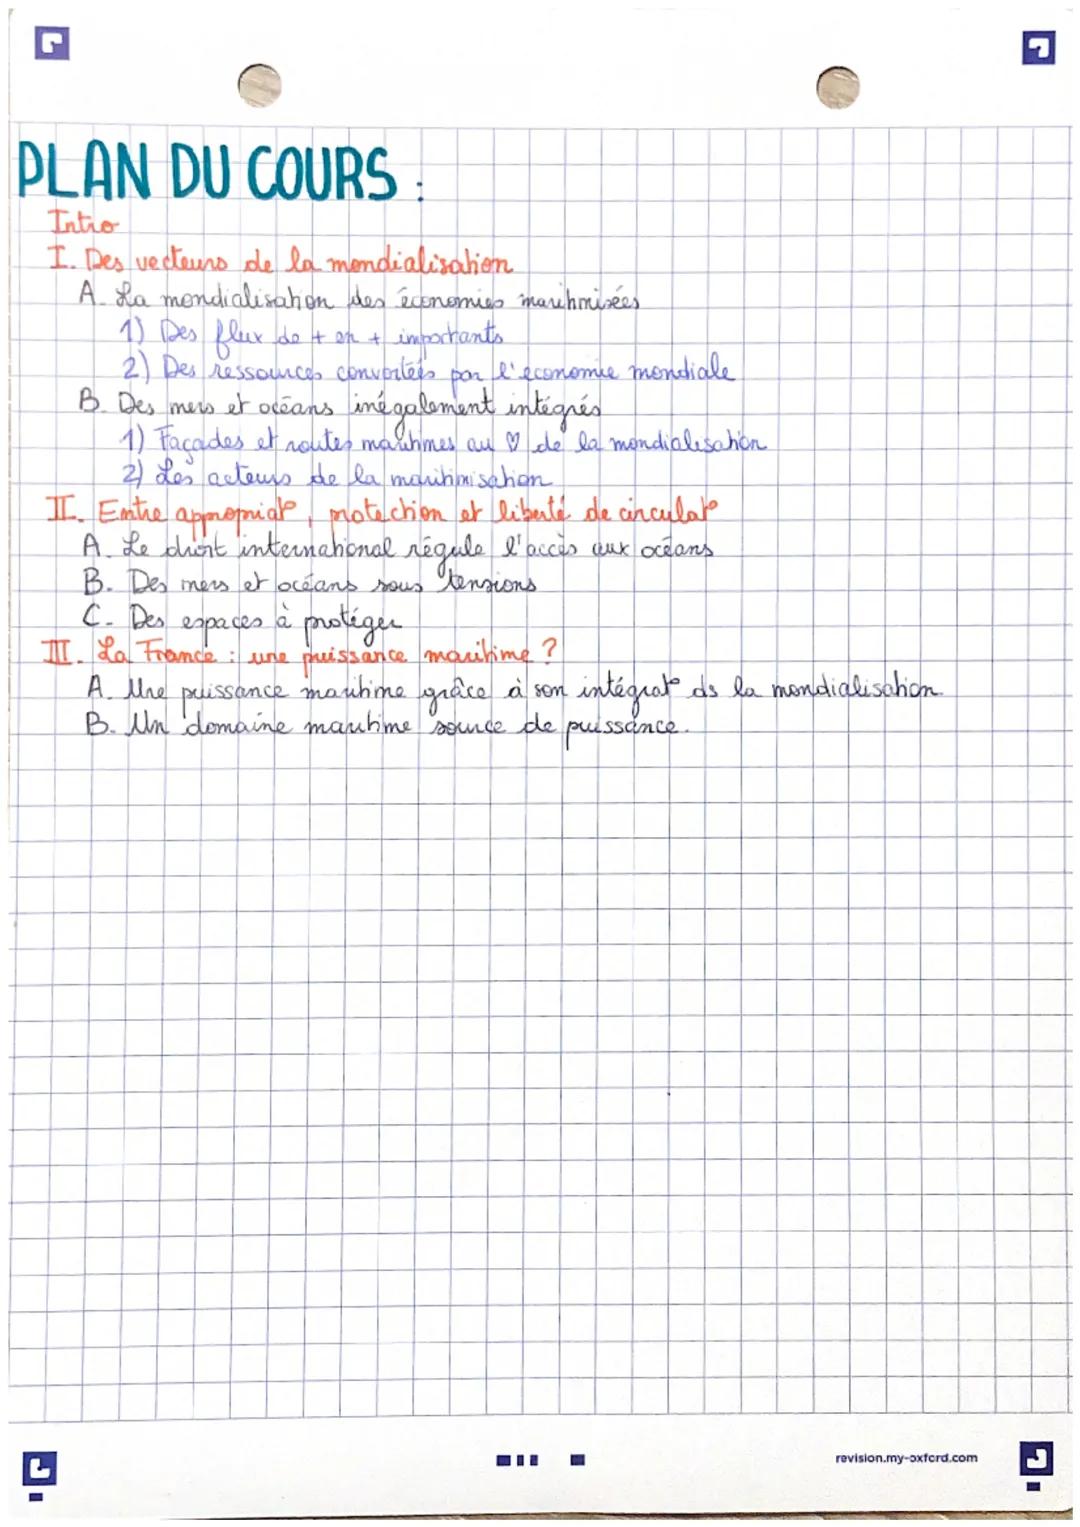 PLAN DU COURS :
Intro
I. Des vecteurs de la mondialisation
A. La mondialisation des économies maritimisées
1) Des flux de + en + importants
2) Des ressources convoitées par l'économie mondiale
B. Des mers et océans inégalement intégrés
1) Façades et routes maritimes au ♡ de la mondialisation
2) Les acteurs de la maritimisation
II. Entre appropriat°, protection et liberté de circulat°
A. Le droit international régule l'accès aux océans
B. Des mers et océans sous tensions
C. Des espaces à protéger
III. La France : une puissance maritime ?
A. Une puissance maritime grâce à son intégrat° ds la mondialisation
B. Un domaine maritime source de puissance.
revision.my-oxford.com